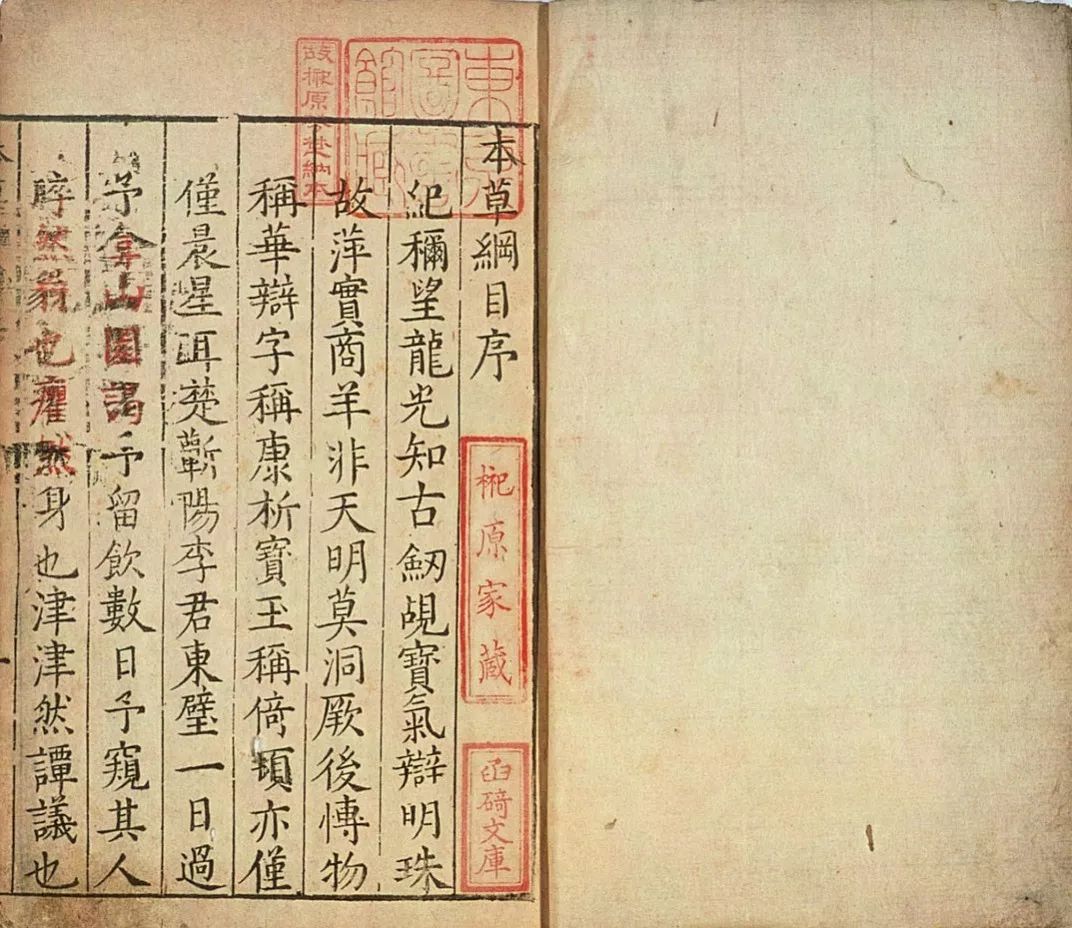 本草綱目序
紀稱望龍光知古劒覘寳氣辯明珠
故萍實商羊非天明莫洞厥後愽物
稱華辯字稱康析寳玉稱倚頓亦僅
僅晨星耳楚蘄陽李君東璧一日過
予弇山園謁予留飲數日予窺其人
睟然貌也癯然身也津津然譚議也
榊原家藏
函碕文庫
故榊原 楚納本
東京圖書館藏